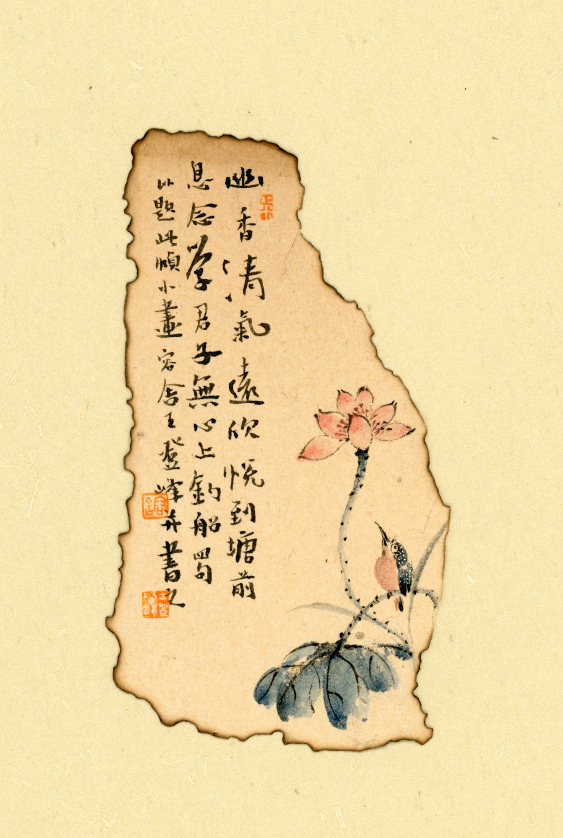 幽香清氣遠欣悦到塘前
息念学君子無心上釣船四句
以題此幀小畫容舍王登峰并書之